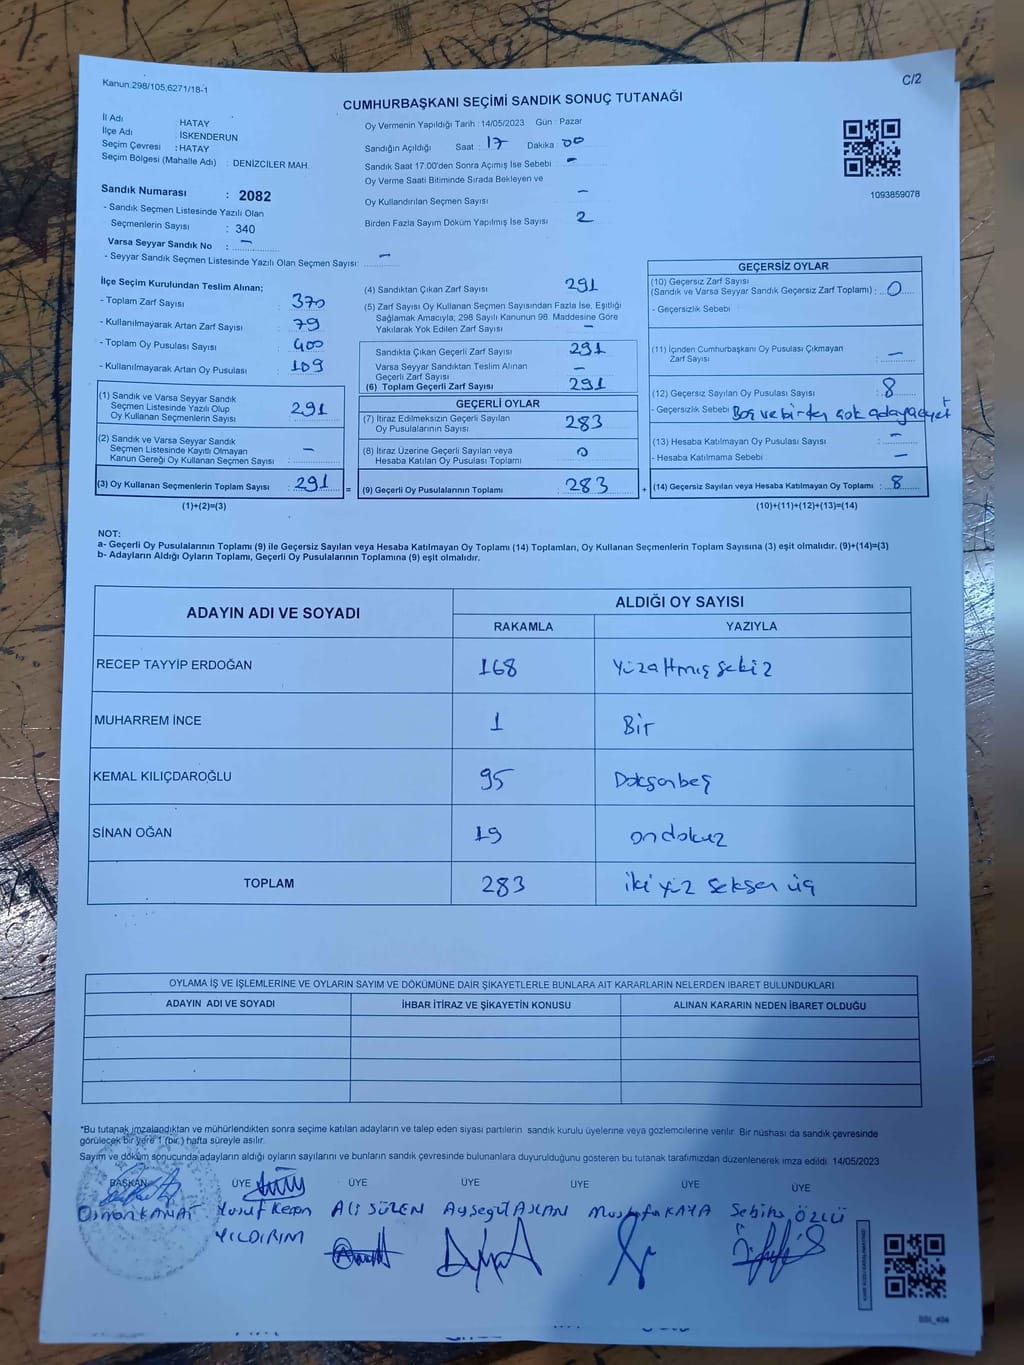 Kanun.298/105,6271/18-1
C/2
CUMHURBAŞKANI SEÇİMİ SANDIK SONUÇ TUTANAĞI
İl Adı : HATAY
İlçe Adı : İSKENDERUN
Seçim Çevresi : HATAY
Seçim Bölgesi (Mahalle Adı) : DENİZCİLER MAH.
Sandık Numarası : 2082
- Sandık Seçmen Listesinde Yazılı Olan
Seçmenlerin Sayısı : 340
Varsa Seyyar Sandık No : —
- Seyyar Sandık Seçmen Listesinde Yazılı Olan Seçmen Sayısı: —
Oy Vermenin Yapıldığı Tarih : 14/05/2023 Gün : Pazar
Sandığın Açıldığı Saat : 17 Dakika : 00
Sandık Saat 17:00'den Sonra Açımış İse Sebebi : —
Oy Verme Saati Bitiminde Sırada Bekleyen ve
Oy Kullandırılan Seçmen Sayısı —
Birden Fazla Sayım Döküm Yapılmış İse Sayısı 2
1093859078
İlçe Seçim Kurulundan Teslim Alınan;
- Toplam Zarf Sayısı : 370
- Kullanılmayarak Artan Zarf Sayısı : 79
- Toplam Oy Pusulası Sayısı : 400
- Kullanılmayarak Artan Oy Pusulası : 109
(1) Sandık ve Varsa Seyyar Sandık
Seçmen Listesinde Yazılı Olup
Oy Kullanan Seçmenlerin Sayısı : 291
(2) Sandık ve Varsa Seyyar Sandık
Seçmen Listesinde Kayıtlı Olmayan
Kanun Gereği Oy Kullanan Seçmen Sayısı : —
(3) Oy Kullanan Seçmenlerin Toplam Sayısı : 291 =
(1)+(2)=(3)
(4) Sandıktan Çıkan Zarf Sayısı 291
(5) Zarf Sayısı Oy Kullanan Seçmen Sayısından Fazla İse, Eşitliği
Sağlamak Amacıyla; 298 Sayılı Kanunun 98. Maddesine Göre
Yakılarak Yok Edilen Zarf Sayısı —
Sandıkta Çıkan Geçerli Zarf Sayısı 291
Varsa Seyyar Sandıktan Teslim Alınan
Geçerli Zarf Sayısı —
(6) Toplam Geçerli Zarf Sayısı 291
GEÇERLİ OYLAR
(7) İtiraz Edilmeksizin Geçerli Sayılan
Oy Pusulalarının Sayısı 283
(8) İtiraz Üzerine Geçerli Sayılan veya
Hesaba Katılan Oy Pusulası Toplamı 0
(9) Geçerli Oy Pusulalarının Toplamı : 283 +
GEÇERSİZ OYLAR
(10) Geçersiz Zarf Sayısı
(Sandık ve Varsa Seyyar Sandık Geçersiz Zarf Toplamı) : 0
- Geçersizlik Sebebi :
(11) İçinden Cumhurbaşkanı Oy Pusulası Çıkmayan
Zarf Sayısı : —
(12) Geçersiz Sayılan Oy Pusulası Sayısı : 8
- Geçersizlik Sebebi : Boş ve birden çok adaya evet
(13) Hesaba Katılmayan Oy Pusulası Sayısı : —
- Hesaba Katılmama Sebebi : —
(14) Geçersiz Sayılan veya Hesaba Katılmayan Oy Toplamı : 8
(10)+(11)+(12)+(13)=(14)
NOT:
a- Geçerli Oy Pusulalarının Toplamı (9) ile Geçersiz Sayılan veya Hesaba Katılmayan Oy Toplamı (14) Toplamları, Oy Kullanan Seçmenlerin Toplam Sayısına (3) eşit olmalıdır. (9)+(14)=(3)
b- Adayların Aldığı Oyların Toplamı, Geçerli Oy Pusulalarının Toplamına (9) eşit olmalıdır.
ADAYIN ADI VE SOYADI
ALDIĞI OY SAYISI
RAKAMLA YAZIYLA
RECEP TAYYİP ERDOĞAN 168 Yüzaltmışsekiz
MUHARREM İNCE 1 Bir
KEMAL KILIÇDAROĞLU 95 Doksanbeş
SİNAN OĞAN 19 ondokuz
TOPLAM 283 iki yüz seksen üç
OYLAMA İŞ VE İŞLEMLERİNE VE OYLARIN SAYIM VE DÖKÜMÜNE DAİR ŞİKAYETLERLE BUNLARA AİT KARARLARIN NELERDEN İBARET BULUNDUKLARI
ADAYIN ADI VE SOYADI İHBAR İTİRAZ VE ŞİKAYETİN KONUSU ALINAN KARARIN NEDEN İBARET OLDUĞU
*Bu tutanak imzalandıktan ve mühürlendikten sonra seçime katılan adayların ve talep eden siyasi partilerin sandık kurulu üyelerine veya gözlemcilerine verilir. Bir nüshası da sandık çevresinde
görülecek bir yere 1 (bir) hafta süreyle asılır.
Sayım ve döküm sonucunda adayların aldığı oyların sayılarını ve bunların sandık çevresinde bulunanlara duyurulduğunu gösteren bu tutanak tarafımızdan düzenlenerek imza edildi. 14/05/2023
BAŞKAN ÜYE ÜYE ÜYE ÜYE ÜYE ÜYE
Osman KANAT Yusuf Kenan Ali SÜZEN Ayşegül ASLAN Mustafa KAYA Sebiha ÖZLÜ
YILDIRIM